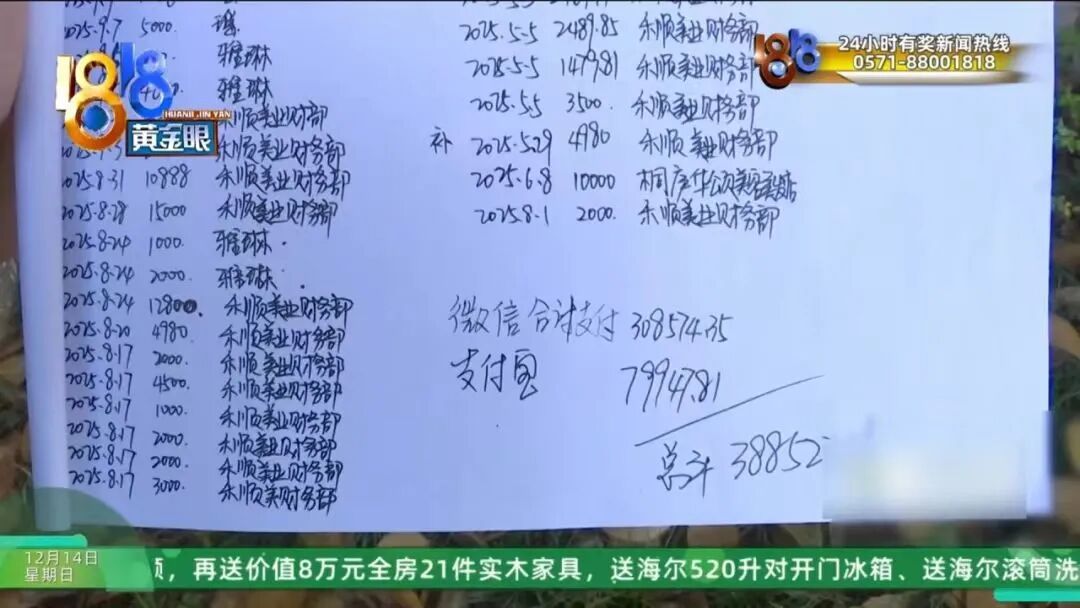 2025.9.7 5000 瑶
雅琳
雅琳
禾顺美业财务部
禾顺美业财务部
2025.8.31 10888 禾顺美业财务部
2025.8.28 15000 禾顺美业财务部
2025.8.24 1000. 雅琳.
2025.8.24 2000. 雅琳.
2025.8.24 12800. 禾顺美业财务部
2025.8.20 4980 禾顺美业财务部
2025.8.17 2000 禾顺美业财务部
2025.8.17 4500 禾顺美业财务部
2025.8.17 1000 禾顺美业财务部
2025.8.17 2000. 禾顺美业财务部
2025.8.17 2000. 禾顺美业财务部
2025.8.17 3000. 禾顺美财务部
2025.5.5 2489.85 禾顺美业财务部
2025.5.5 1479.81 禾顺美业财务部
2025.5.5 3500 禾顺美业财务部
补 2025.5.29 4980 禾顺美业财务部
2025.6.8 10000 桐庐华颂美容美发店
2025.8.1 2000. 禾顺美业财务部
微信合计支付 308574.35
支付宝 79947.81
总计 38852
1818
HUANG JIN YAN
黄金眼
1818
24小时有奖新闻热线
0571-88001818
12月14日
星期日
须，再送价值8万元全房21件实木家具，送海尔520升对开门冰箱、送海尔滚筒洗